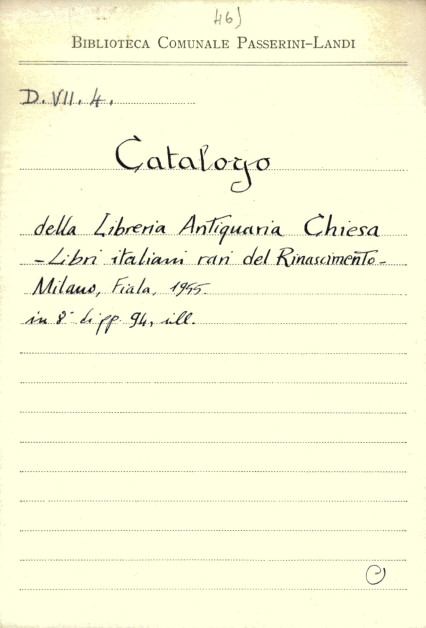 46)
BIBLIOTECA COMUNALE PASSERINI-LANDI
D. VII. 4.
Catalogo
della Libreria Antiquaria Chiesa
- Libri italiani rari del Rinascimento -
Milano, Fiala, 1955.
in 8° di pp. 94, ill.